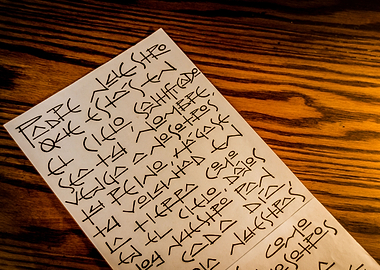 PADRE NUESTRO
QUE ESTAS EN
EL CIELO, SANTIFICADO
SEA TU NOMBRE
VENGA A NOSOTROS
TU REINO, HAGASE
TU VOLUNTAD EN
LA TIERRA COMO
EL CIELO DANOS
HOY NUESTRO
CADA DIA
NUESTRAS
COMO
NOSOTROS